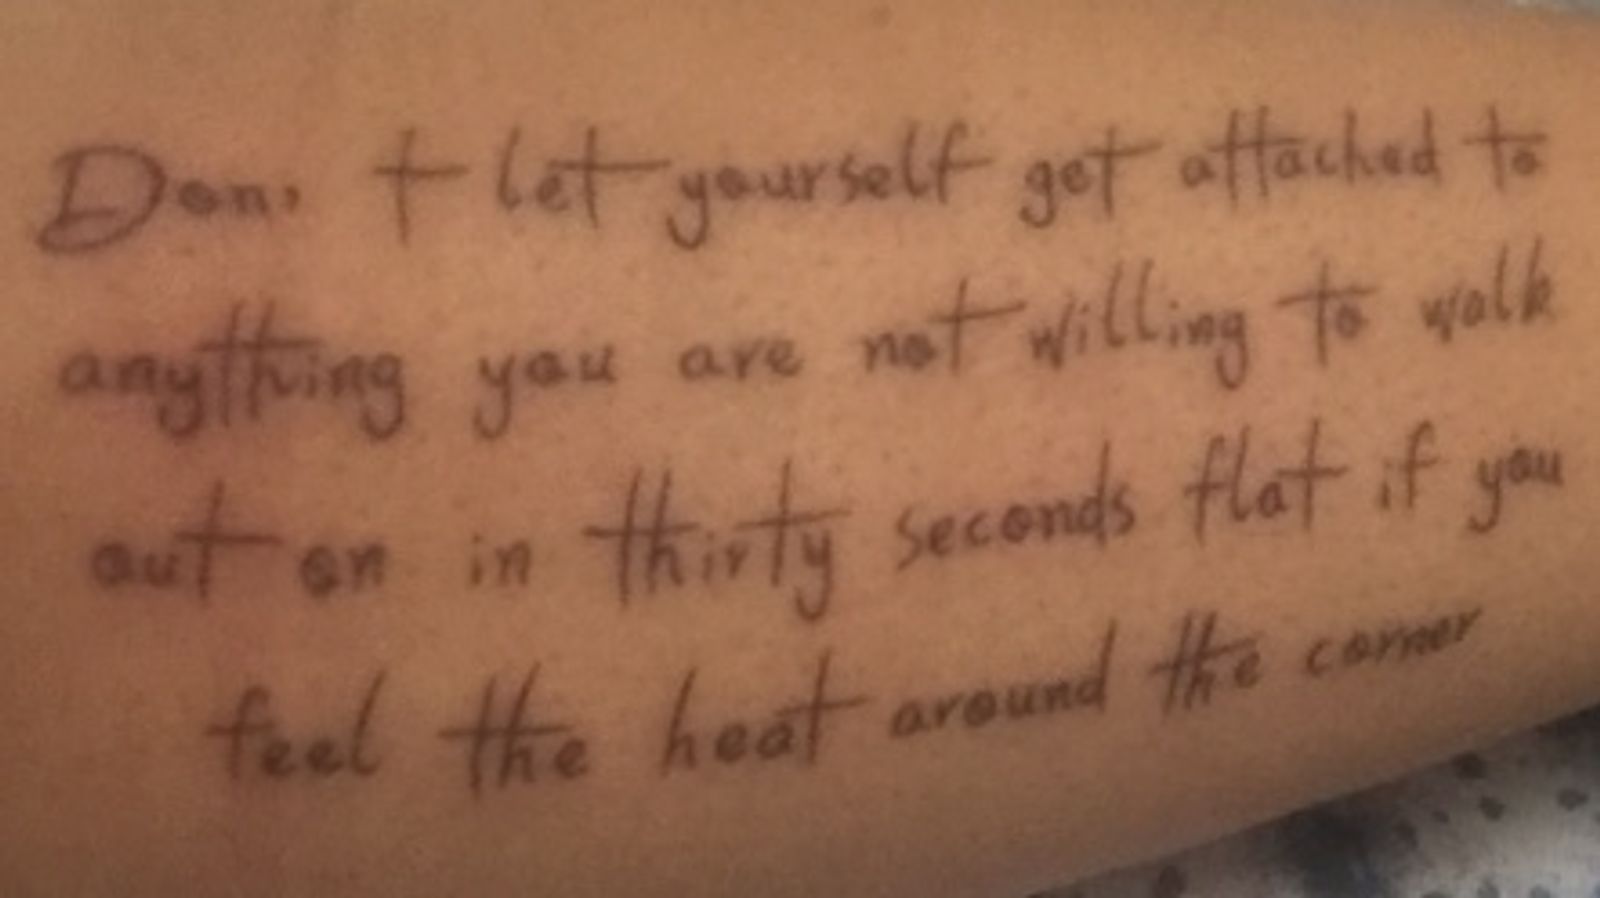 Don, t let yourself get attached to
anything you are not willing to walk
out on in thirty seconds flat if you
feel the heat around the corner